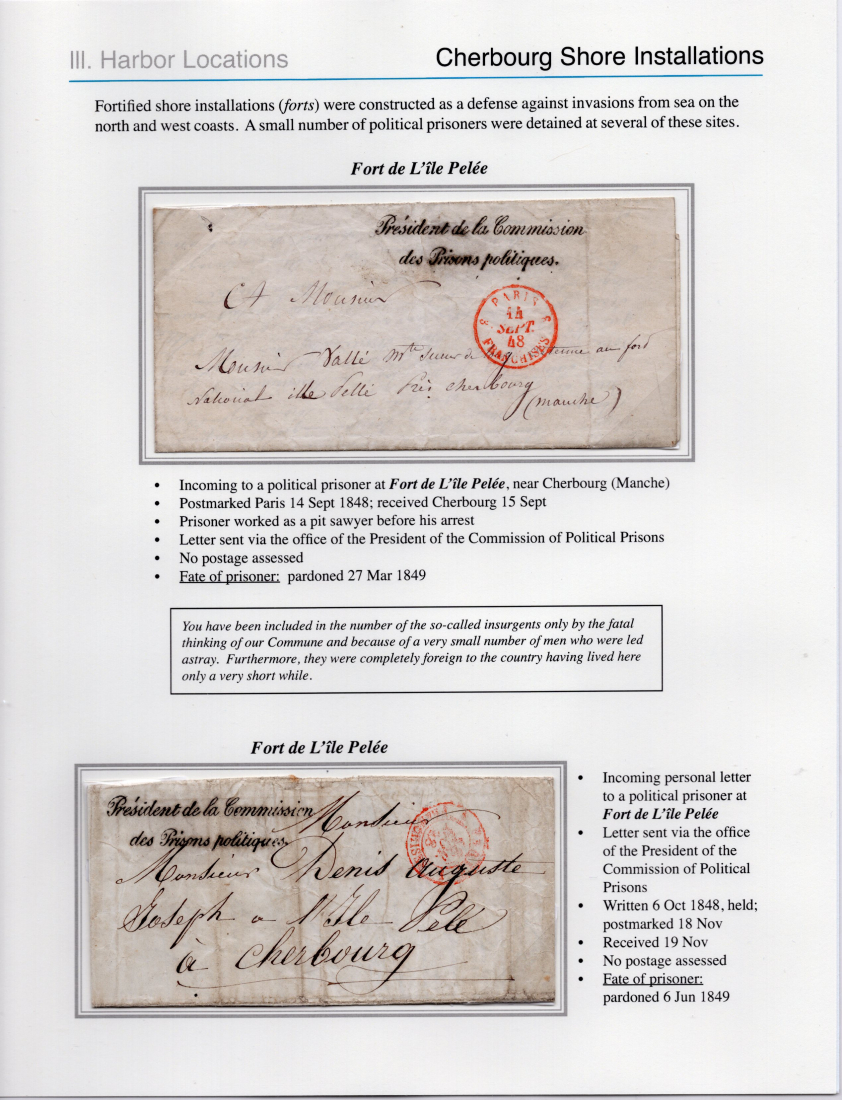 III. Harbor Locations
Cherbourg Shore Installations
Fortified shore installations (forts) were constructed as a defense against invasions from sea on the
north and west coasts. A small number of political prisoners were detained at several of these sites.
Fort de L'île Pelée
Président de la Commission
des Prisons politiques.
A Monsieur
PARIS
14
SEPT.
48
FRANCHISES
Monsieur Vallé au fort
National ille Pellé Près Cherbourg
(manche)
• Incoming to a political prisoner at Fort de L'île Pelée, near Cherbourg (Manche)
• Postmarked Paris 14 Sept 1848; received Cherbourg 15 Sept
• Prisoner worked as a pit sawyer before his arrest
• Letter sent via the office of the President of the Commission of Political Prisons
• No postage assessed
• Fate of prisoner: pardoned 27 Mar 1849
You have been included in the number of the so-called insurgents only by the fatal
thinking of our Commune and because of a very small number of men who were led
astray. Furthermore, they were completely foreign to the country having lived here
only a very short while.
Fort de L'île Pelée
Président de la Commission
des Prisons politiques.
Monsieur
Monsieur Denis Auguste
Joseph a l'Ile Pelé
à Cherbourg
• Incoming personal letter
to a political prisoner at
Fort de L'île Pelée
• Letter sent via the office
of the President of the
Commission of Political
Prisons
• Written 6 Oct 1848, held;
postmarked 18 Nov
• Received 19 Nov
• No postage assessed
• Fate of prisoner:
pardoned 6 Jun 1849